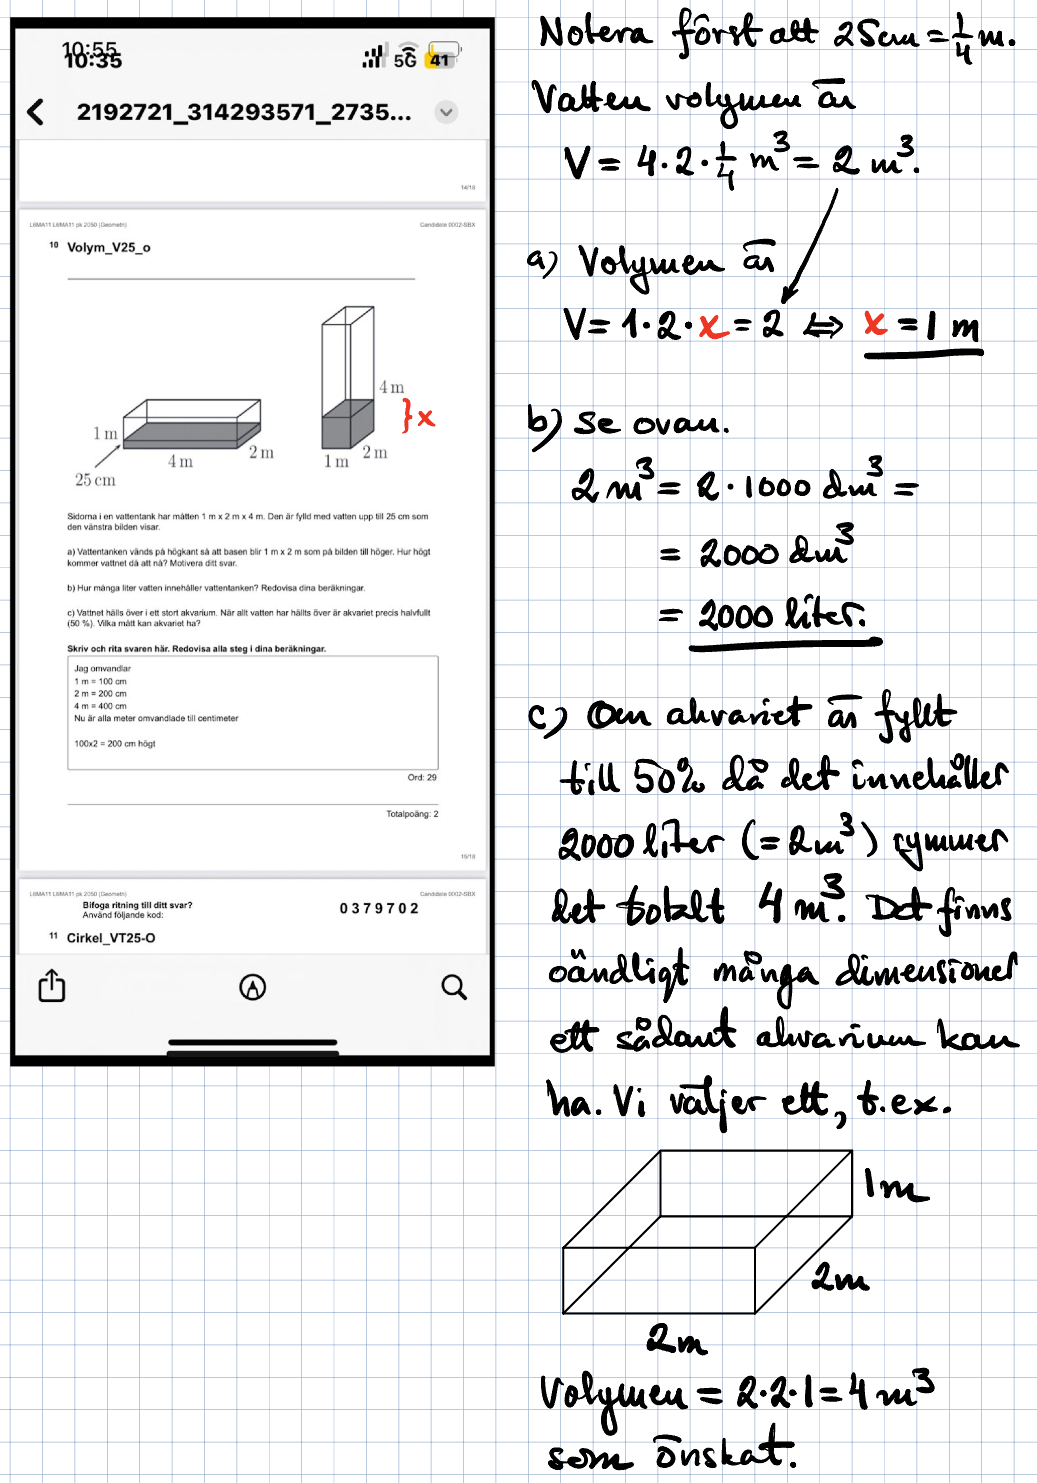 10:55
10:35
5G 41
2192721_314293571_2735...
14/18
L6MA11 L6MA11 pk 2050 (Geometri)
Candidate 0002-SBX
10 Volym_V25_o
1 m
4 m
2 m
25 cm
4 m
} x
1 m
2 m
Sidorna i en vattentank har måtten 1 m x 2 m x 4 m. Den är fylld med vatten upp till 25 cm som
den vänstra bilden visar.
a) Vattentanken vänds på högkant så att basen blir 1 m x 2 m som på bilden till höger. Hur högt
kommer vattnet då att nå? Motivera ditt svar.
b) Hur många liter vatten innehåller vattentanken? Redovisa dina beräkningar.
c) Vattnet hälls över i ett stort akvarium. När allt vatten har hällts över är akvariet precis halvfullt
(50 %). Vilka mått kan akvariet ha?
Skriv och rita svaren här. Redovisa alla steg i dina beräkningar.
Jag omvandlar
1 m = 100 cm
2 m = 200 cm
4 m = 400 cm
Nu är alla meter omvandlade till centimeter
100x2 = 200 cm högt
Ord: 29
Totalpoäng: 2
15/18
L6MA11 L6MA11 pk 2050 (Geometri)
Candidate 0002-SBX
Bifoga ritning till ditt svar?
Använd följande kod:
0379702
11 Cirkel_VT25-O
Notera först att 25cm = 1/4 m.
Vatten volymen är
V = 4·2·1/4 m³ = 2 m³.
a) Volymen är
V = 1·2·x = 2 ⇔ x = 1 m
b) Se ovan.
2 m³ = 2·1000 dm³ =
= 2000 dm³
= 2000 liter.
c) Om akvariet är fyllt
till 50% då det innehåller
2000 liter (= 2m³) rymmer
det totalt 4 m³. Det finns
oändligt många dimensioner
ett sådant akvarium kan
ha. Vi väljer ett, t.ex.
1m
2m
2m
Volymen = 2·2·1 = 4 m³
som önskat.